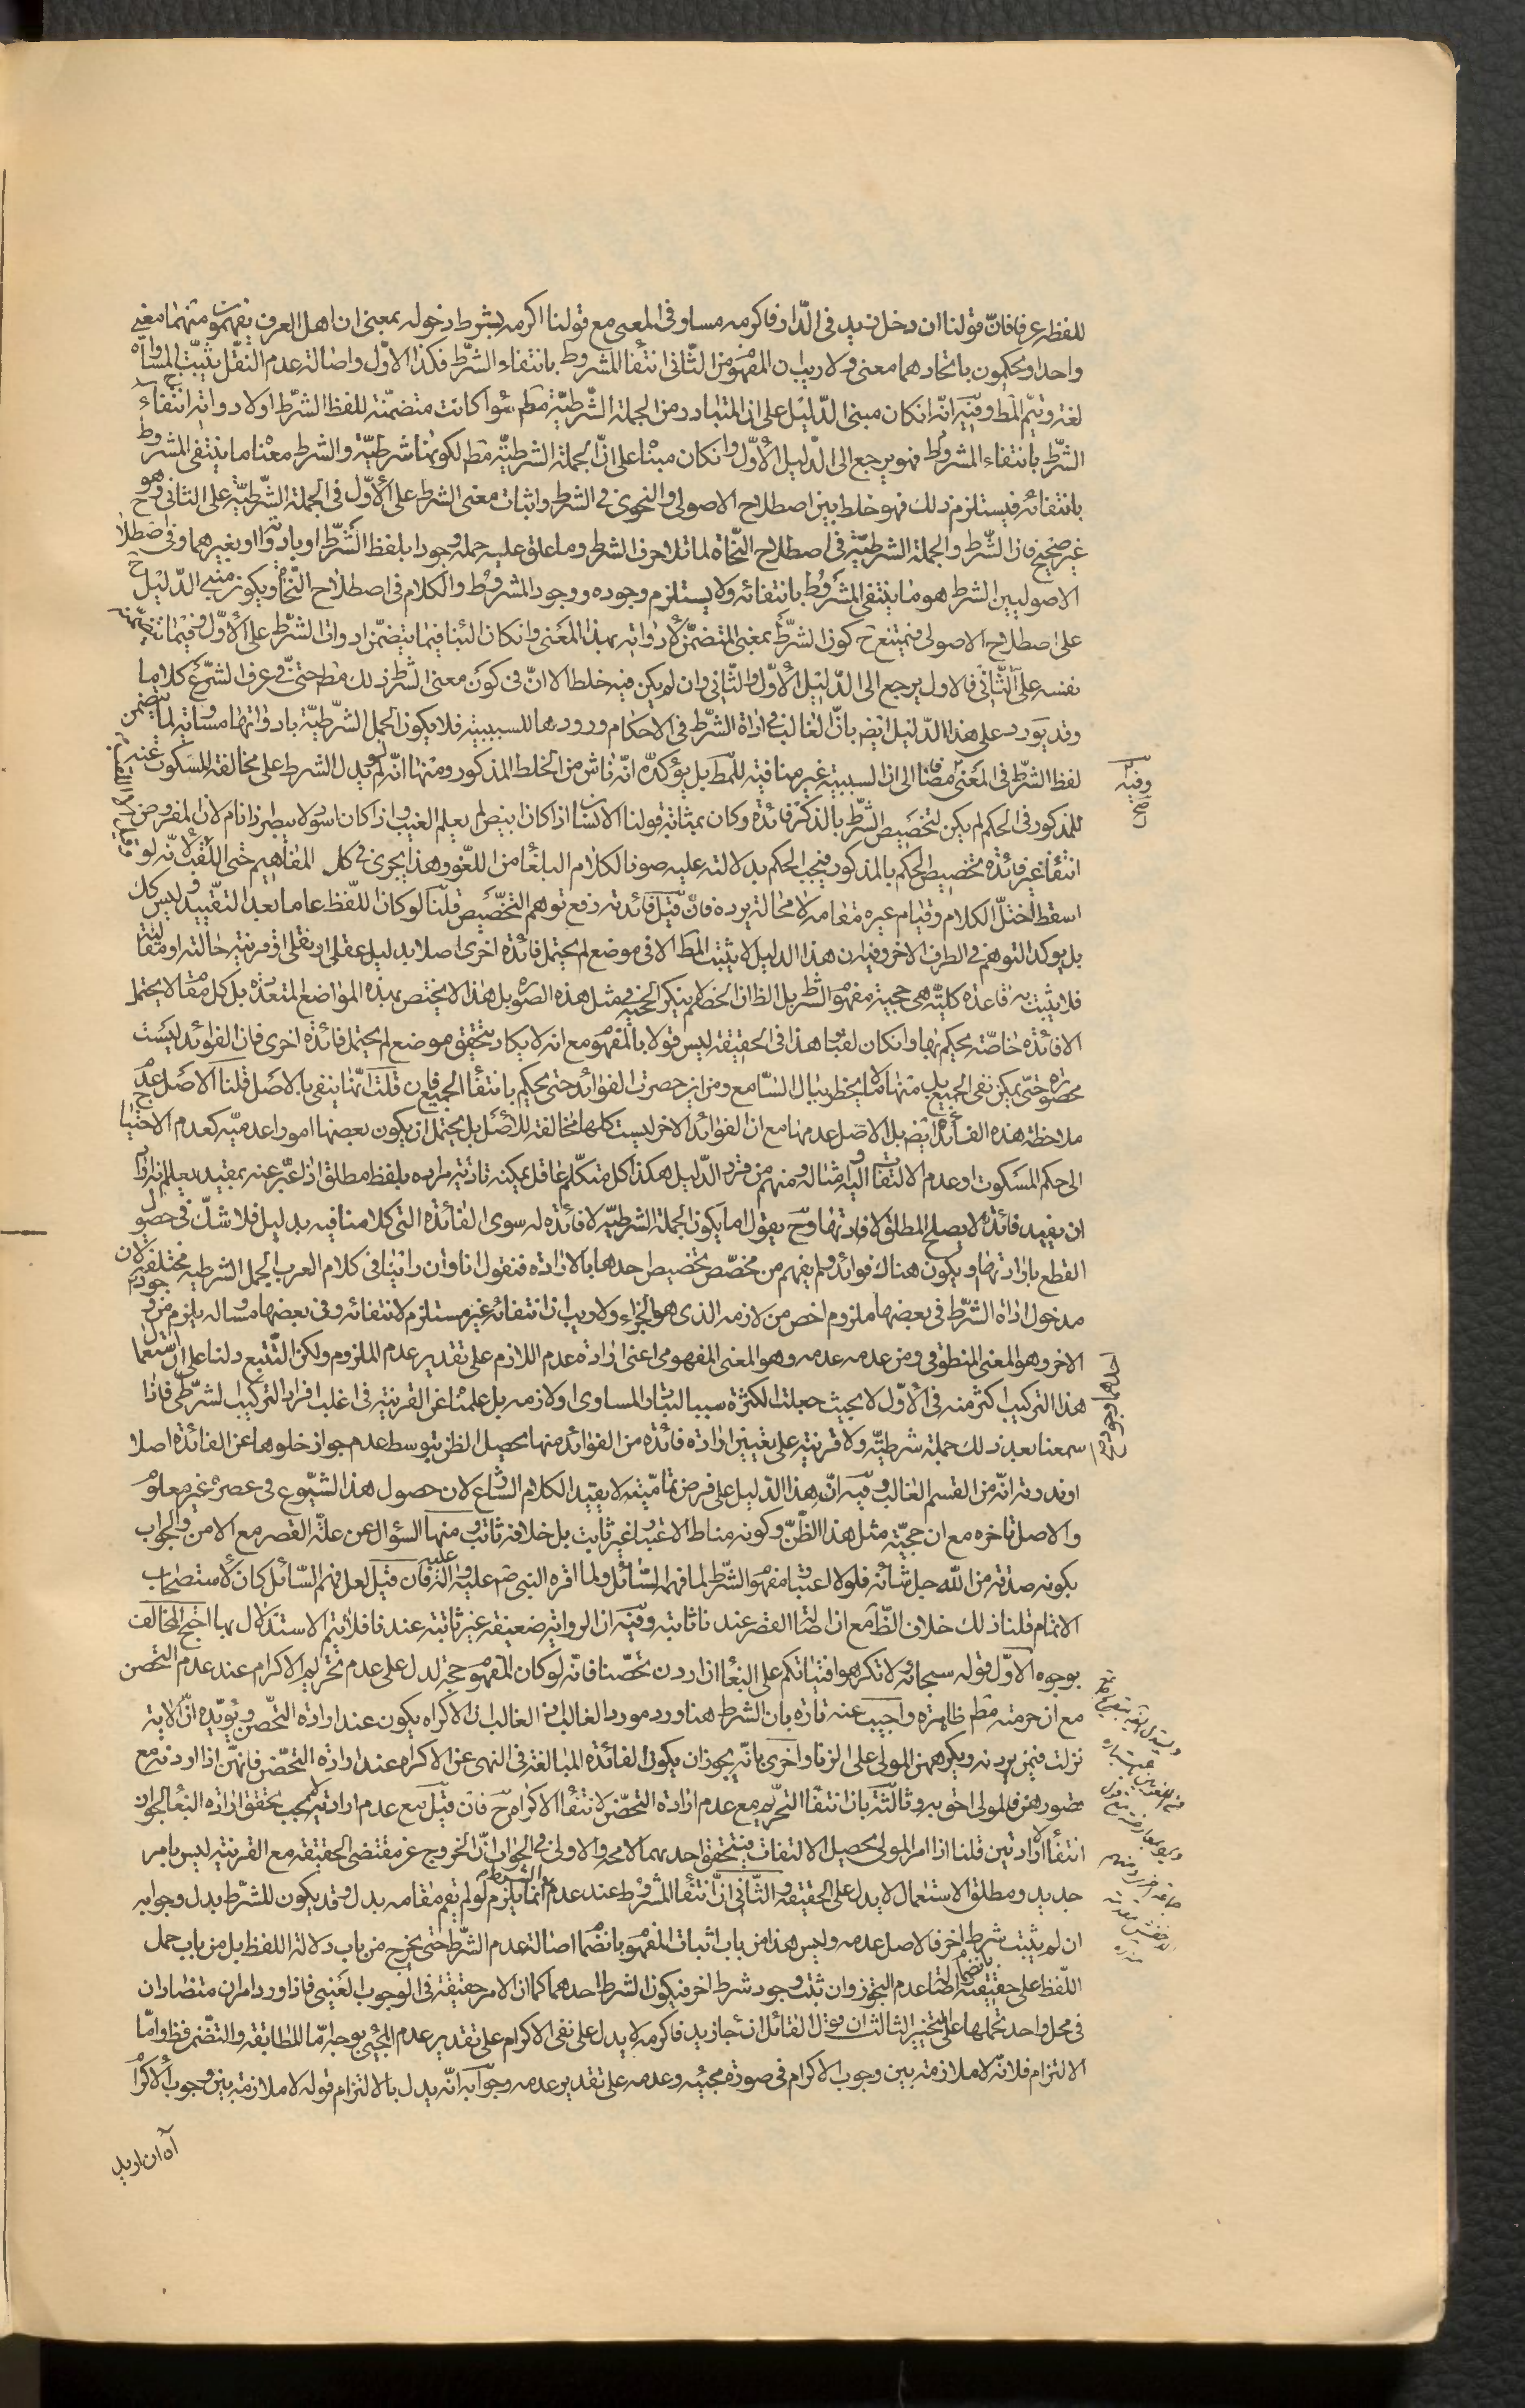 للفظه عرفا فانّ قولنا ان دخل زيد فى الدّار فاكرمه مساو فى المعنى مع قولنا اكرمه بشرط دخوله بمعنى ان اهل العرف يفهمون منهما معنى
واحدا و يحكمون باتحادهما معنى و لا ريب ان المفهوم من الثّانى انتفاء المشروط بانتفاء الشرّط فكذا الاوّل و اصالة عدم النقل يثبت المساواة
لغة و يتم المط و فيه انّه ان كان مبنى الدّليل على ان المتبادر من الجملة الشّرطيّة مطم سواء كانت متضمّنة للفظ الشرّط او لادواته انتفاء
الشرّط بانتفاء المشروط فهو يرجع الى الدّليل الاوّل و ان كان مبناه على انّ الجملة الشرطيّة مطم لكونها شرطيّة و الشرط معناه ما ينتفى المشروط
بانتفائه فيستلزم ذلك فهو خلط بين اصطلاح الاصولى و النحوى فى الشرط و اثبات معنى الشرط على الاوّل فى الجملة الشّرطيّة على الثانى و هو ح
غير صحيح فان الشّرط و الجملة الشرطيّة فى اصطلاح النّحاة لما تلا حرف الشرط و ما علق عليه جملة وجودا بلفظ الشّرط او بادواته او بغيرهما و فى اصطلاح
الاصوليين الشرط هو ما ينتفى المشروط بانتفائه و لا يستلزم وجوده وجود المشروط و الكلام فى اصطلاح النّحاة و يكون مبنى الدّليل
على اصطلاح الاصولى فيمتنع ح كون الشرّط بمعنى المتضمّن لادواته بهذا المعنى و ان كان البناء فيما يتضمّن ادوات الشرّط على الاوّل و فيما تضمّنه
نفسه على الثّانى فالاول يرجع الى الدّليل الاوّل و الثّانى و ان لم يكن فيه خلط الا انّ فى كون معنى الشرّط ذلك مطم حتىّ فى عرف الشرّع كلاما
و قد يورد على هذا الدّليل ايض بانّ الغالب فى اداة الشرّط فى الاحكام ورودها للسببيّة فلا يكون الجمل الشرّطيّة بادواتها مساوية لما يتضمن
لفظ الشرّط فى المعنى مضافا الى ان السببيّة غير منافية للمط بل يؤكده انّه ناش من الخلط المذكور و منها انّه لو لم يدل الشرط على مخالفة المسكوت عنه
للمذكور فى الحكم لم يكن لتخصيص الشرّط بالذكر فائدة و كان بمثابة قولنا الانسان اذا كان ابيض لم يعلم الغيب و اذا كان اسود لا يبصر اذا نام لان المفروض
انتفاء غير فائدة تخصيص الحكم بالمذكور فيجب الحكم بدلالته عليه صونا لكلام البلغاء من اللّغو و هذا يجرى فى كل المفاهيم حتى اللّقب لانّه لو
اسقط اختلّ الكلام و قيام غيره مقامه لا محالة يرده فان قيل فائدته دفع توهم التخصيص قلنا لو كان اللّفظ عاما بعد التقييد و ليس كك
بل يوكد التوهم فى الطرف الاخر و فيه ان هذا الدليل لا يثبت المط الا فى موضع لم يحتمل فائدة اخرى اصلا بدليل عقلى او نقلى او قرينة حالية او مقالية
فلا يثبت به قاعدة كليّة هى حجية مفهوم الشّرط بل الظ ان الخصم لم ينكر الحجيّة فى مثل هذه الصورة بل هذا لا يختص بهذه المواضع المتعددة بل كل مقام لا يحتمل
الا فائدة خاصّة يحكم بها و ان كان لقبا و هذا فى الحقيقة ليس قولا بالمفهوم مع انه لا يكاد يتحقق موضع لم يحتمل فائدة اخرى فان الفوائد ليست
محصورة حتىّ يمكن نفى الجميع بل منها ما لا يخطر ببال السّامع و من اين حصرت الفوائد حتى يحكم بانتفاء الجميع فان قلت انّما ينفى بالاصل قلنا الاصل عدم
ملاحظة هذه الفائدة ايض بل الاصل عدمها مع ان الفوائد الاخر ليست كلها مخالفة للاصل بل يحتمل ان يكون بعضها امورا عدميّة كعدم الاحتياج
الى حكم المسكوت او عدم الالتفات اليه و امثاله و منهم من قرر الدّليل هكذا كل متكلّم عاقل يمكنه تادية مراده بلفظ مطلق اذا عبّر عنه بمقيد يعلم انه اراد
ان يفيد فائدة لا يصلح المطلق لافادتها و ح يقول اما يكون الجملة الشرطيّة لا فائدة له سوى الفائدة التى كلامنا فيه بدليل فلا شك فى حصول
القطع بارادتها و يكون هناك فوائد و لم يفهم من مخصّص تخصيص احدها بالارادة فنقول انا و ان راينا فى كلام العرب الجمل الشرطيه مختلفة لان
مدخول اداة الشرّط فى بعضها ملزوم اخص من لازمه الذى هو الجزاء و لا ريب ان انتفائه غير مستلزم لانتفائه و فى بعضها مساو له يلزم من وجوده
الاخر و هو المعنى المنطوقى و من عدمه عدمه و هو المعنى المفهومى اعنى ارادة عدم اللازم على تقدير عدم الملزوم و لكن التّتبع دلنا على ان استعمال
هذا التركيب اكثر منه فى الاوّل لا بحيث جعلت الكثرة سببا لتبادر المساوى او لازمه بل علمنا عن القرينة فى اغلب افراد التركيب الشرّطى فاذا
سمعنا بعد ذلك جملة شرطيّة و لا قرينة على تعيين ارادة فائدة من الفوائد منها يحصل الظن بتوسط عدم جواز خلوها عن الفائدة اصلا
او ندرته انّه من القسم الغالب و فيه انّ هذا الدّليل على فرض تماميّته لا يقيد الكلام الشارع لان حصول هذا الشّيوع فى عصره غير معلوم
و الاصل تاخره مع ان حجيّة مثل هذا الظّنّ و كونه مناط الاعتبار غير ثابت بل خلافه ثابت و منها السؤال عن علّة القصر مع الامن و الجواب
بكونه صدقة من الله جل شأنه فلولا اعتبار مفهوم الشّرط لما فهم السّائل و لما اقره النبى ص عليه و اله عليه فان قيل لعل فهم السّائل كان لاستصحاب
الاتمام قلنا ذلك خلاف الظّ مع ان اصالة القصر عندنا ثابتة و فيه ان الرواية ضعيفة غير ثابتة عندنا فلا يتم الاستدلال بها احتج المخالف
بوجوه الاوّل قوله سبحانه و لا تكرهوا فتياتكم على البغاء ان اردن تحصّنا فانّه لو كان المفهوم حجة لدل على عدم تحريم الاكراه عند عدم التحصن
مع ان حرمته مطم ظاهرة و اجيب عنه تارة بان الشرط هنا ورد مورد الغالب اذ الغالب ان الاكراه يكون عند ارادة التحصّن و يؤيّده انّ الاية
نزلت فيمن يردنه و يكرههن المولى على الزنا و اخرى بانّه يجوز ان يكون الفائدة المبالغة فى النهى عن الاكراه عند ارادة التحصّن فانهّن اذا اردنه مع
قصورهن فالمولى احق به و ثالثة بان انتفاء التحريم مع عدم ارادة التحصّن لانتفاء الاكراه ح فان قيل مع عدم ارادته لا يجب تحقق ارادة البغاء لجواز
انتفاء الارادتين قلنا اذا امر المولى يحصل الالتفات فيتحقق احديهما لا محة و الاولى فى الجواب انّ الخروج عن مقتضى الحقيقة مع القرينة ليس بامر
جديد و مطلق الاستعمال لا يدل على الحقيقة و الثّانى انّ انتفاء المشروط عند عدم الشرط انما يلزم لو لم يقم مقامه بدل و قد يكون للشرّط بدل و جوابه
ان لم يثبت شرط اخر فالاصل عدمه و ليس هذا من باب اثبات المفهوم بانضمام اصالة عدم الشرّط حتى يخرج من باب دلالة اللفظ بل من باب حمل
اللّفظ على حقيقته بانضمام اصالة عدم التجوز و ان ثبت وجود شرط اخر فيكون الشرط احدهما كما ان الامر حقيقة فى الوجوب العينى فاذا ورد امران متضادان
فى محل واحد تحملها على التخيير الثالث ان قول القائل ان جاء زيد فاكرمه لا يدل على نفى الاكرام على تقدير عدم المجئى بوجه امّا المطابقة و التضّمن فظ و امّا
الالتزام فلانّه لا ملازمة بين وجوب الاكرام فى صورة مجيئه و عدمه على تقدير عدمه و جوابه انّه يدل بالالتزام قوله لا ملازمة بين وجوب الاكرام
اه ان اريد